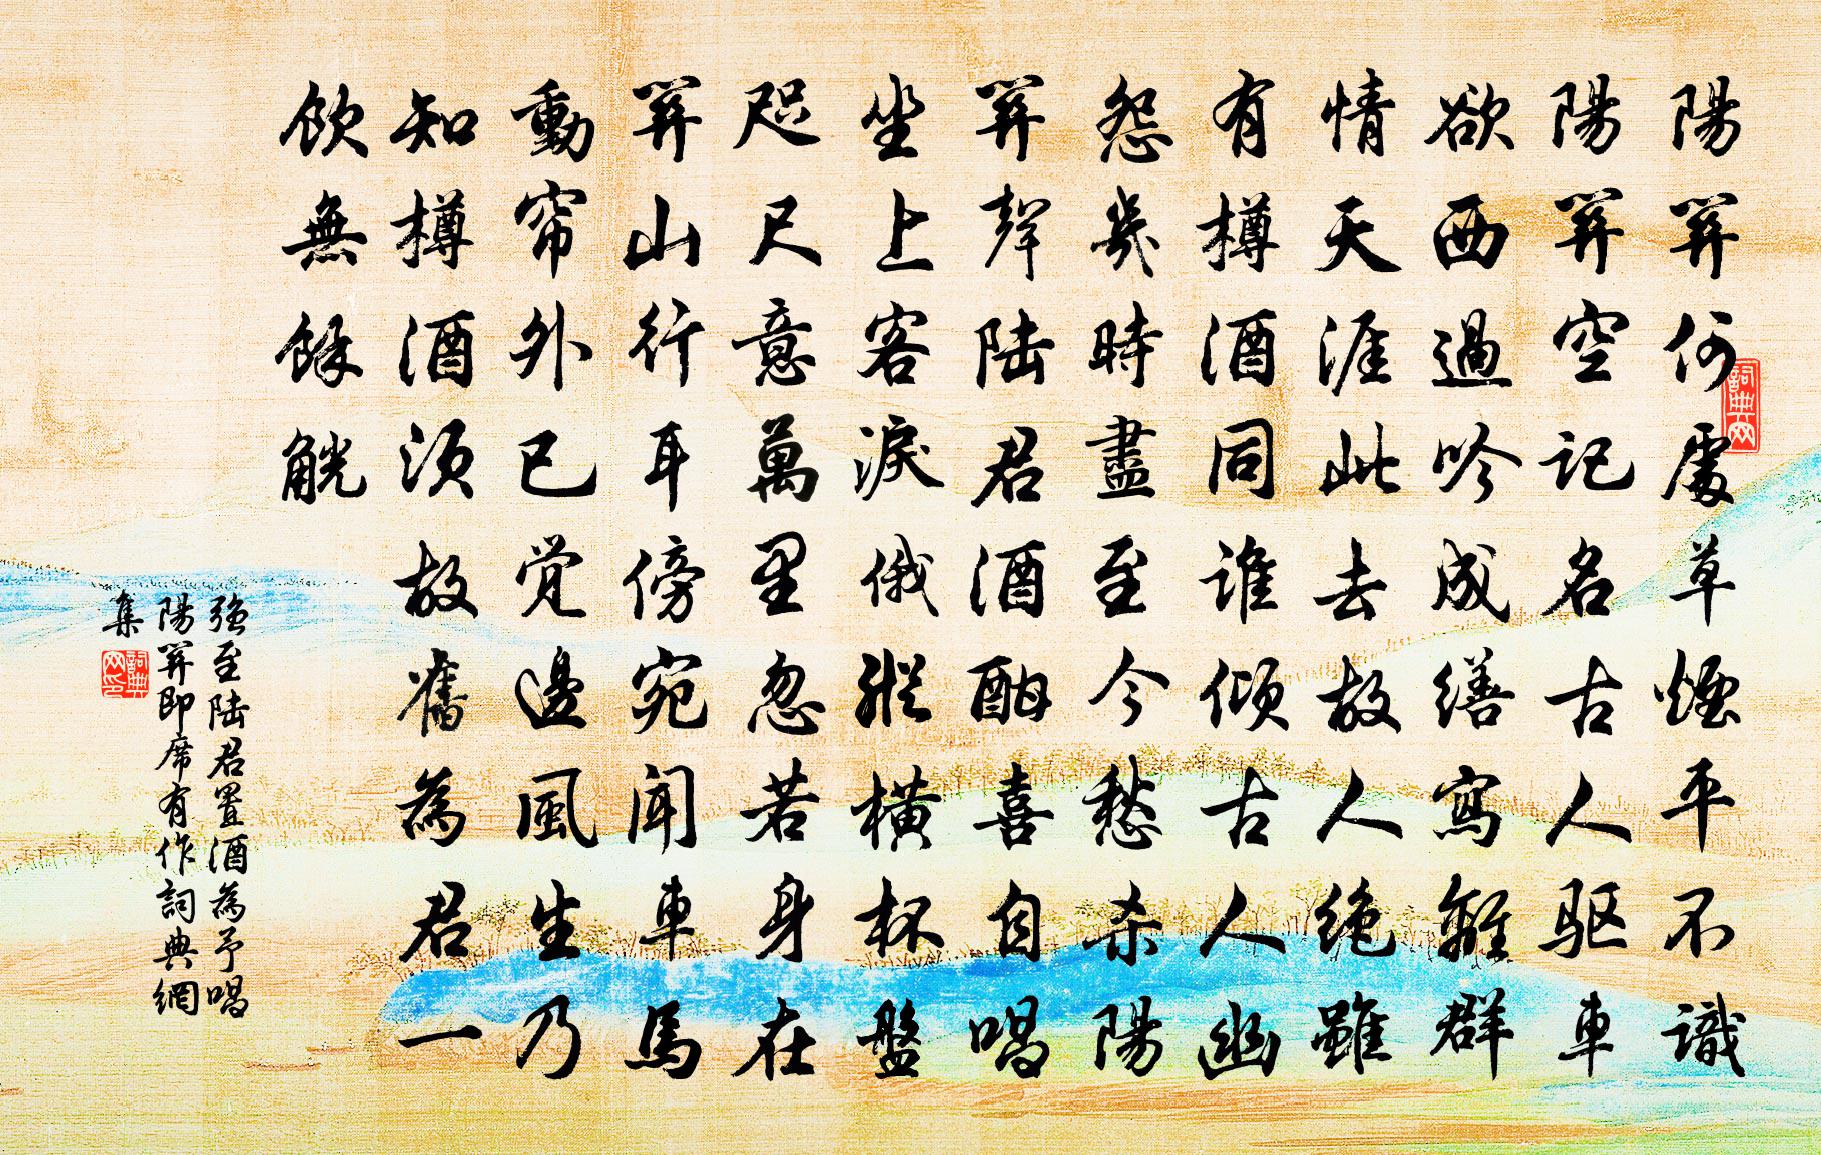 陽關何處草煙平不識
陽關空記名古人驱車
欲西過吟成繕寫離群
情天涯此去故人絶雖
有樽酒同誰傾古人幽
怨幾時盡至今愁杀陽
關聲陆君酒酣喜自唱
坐上客淚俄縱橫杯盤
咫尺意萬里忽若身在
關山行耳傍宛聞車馬
動帘外已覚邊風生乃
知樽酒須故舊為君一
飲無餘觥
強至陆君置酒為予唱
陽關即席有作詞典網
集
詞典网
詞典网印